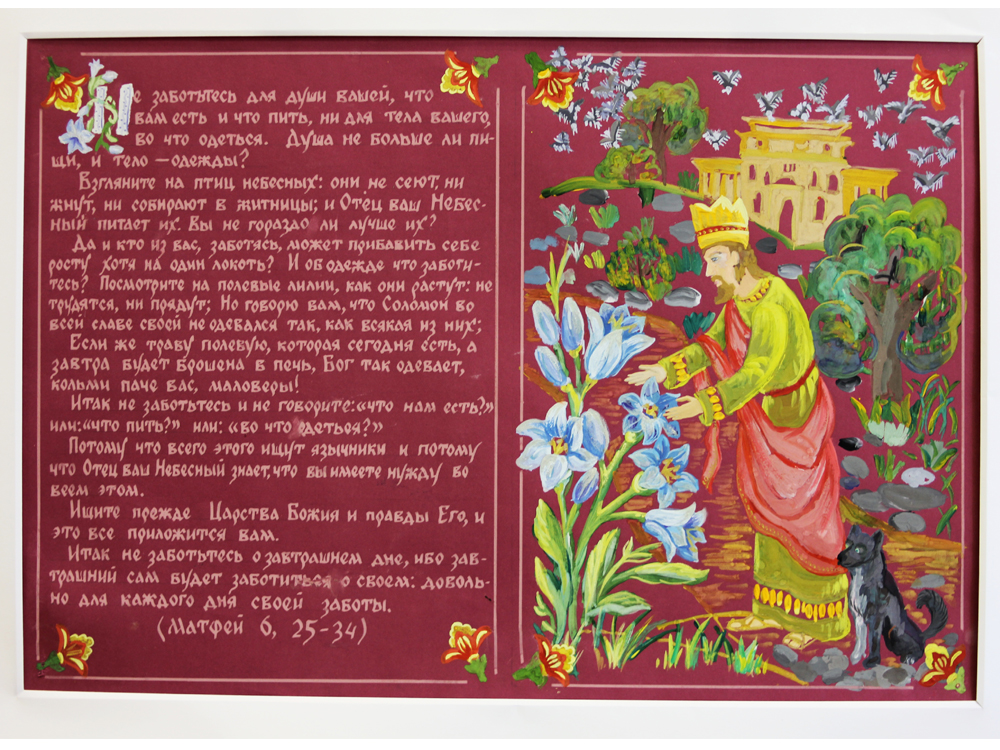 Не заботьтесь для души вашей, что
вам есть и что пить, ни для тела вашего,
во что одеться. Душа не больше ли пи-
щи, и тело — одежды?
Взгляните на птиц небесных: они не сеют, ни
жнут, ни собирают в житницы; и Отец ваш Небес-
ный питает их. Вы не гораздо ли лучше их?
Да и кто из вас, заботясь, может прибавить себе
росту хотя на один локоть? И об одежде что заботи-
тесь? Посмотрите на полевые лилии, как они растут: не
трудятся, ни прядут; Но говорю вам, что Соломон во
всей славе своей не одевался так, как всякая из них;
Если же траву полевую, которая сегодня есть, а
завтра будет брошена в печь, Бог так одевает,
кольми паче вас, маловеры!
Итак не заботьтесь и не говорите: «что нам есть?»
или: «что пить?» или: «во что одеться?»
Потому что всего этого ищут язычники и потому
что Отец ваш Небесный знает, что вы имеете нужду во
всем этом.
Ищите прежде Царства Божия и правды Его, и
это все приложится вам.
Итак не заботьтесь о завтрашнем дне, ибо зав-
трашний сам будет заботиться о своем: доволь-
но для каждого дня своей заботы.
(Матфей 6, 25-34)